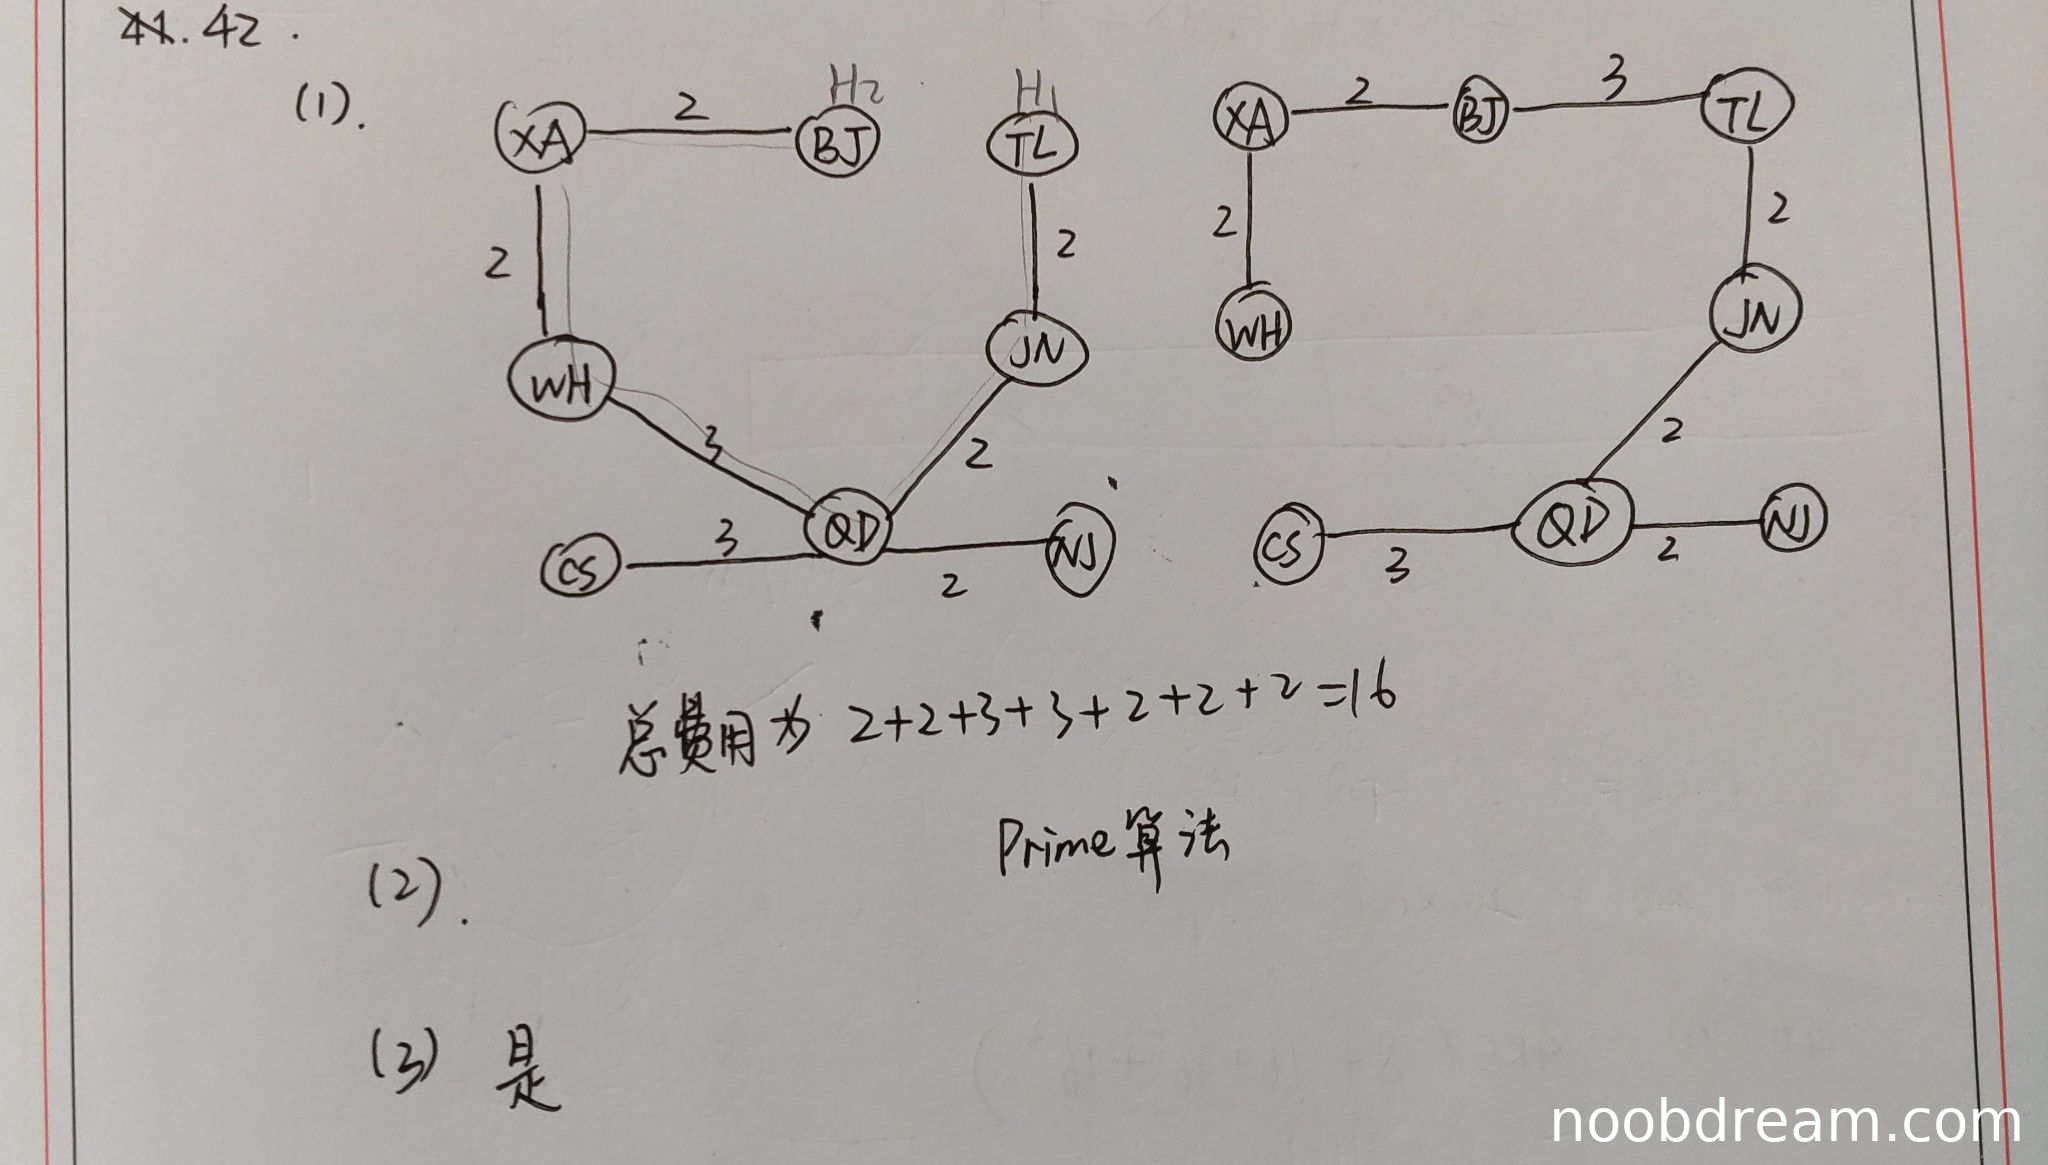 42.
(1).
H2 H1
XA 2 BJ TL
2 2
WH JN
3 2
CS 3 QD 2 NJ
XA 2 BJ 3 TL
2 2
WH JN
2
CS 3 QD 2 NJ
总费用为 2+2+3+3+2+2+2=16
Prime算法
(2).
(3) 是
noobdream.com